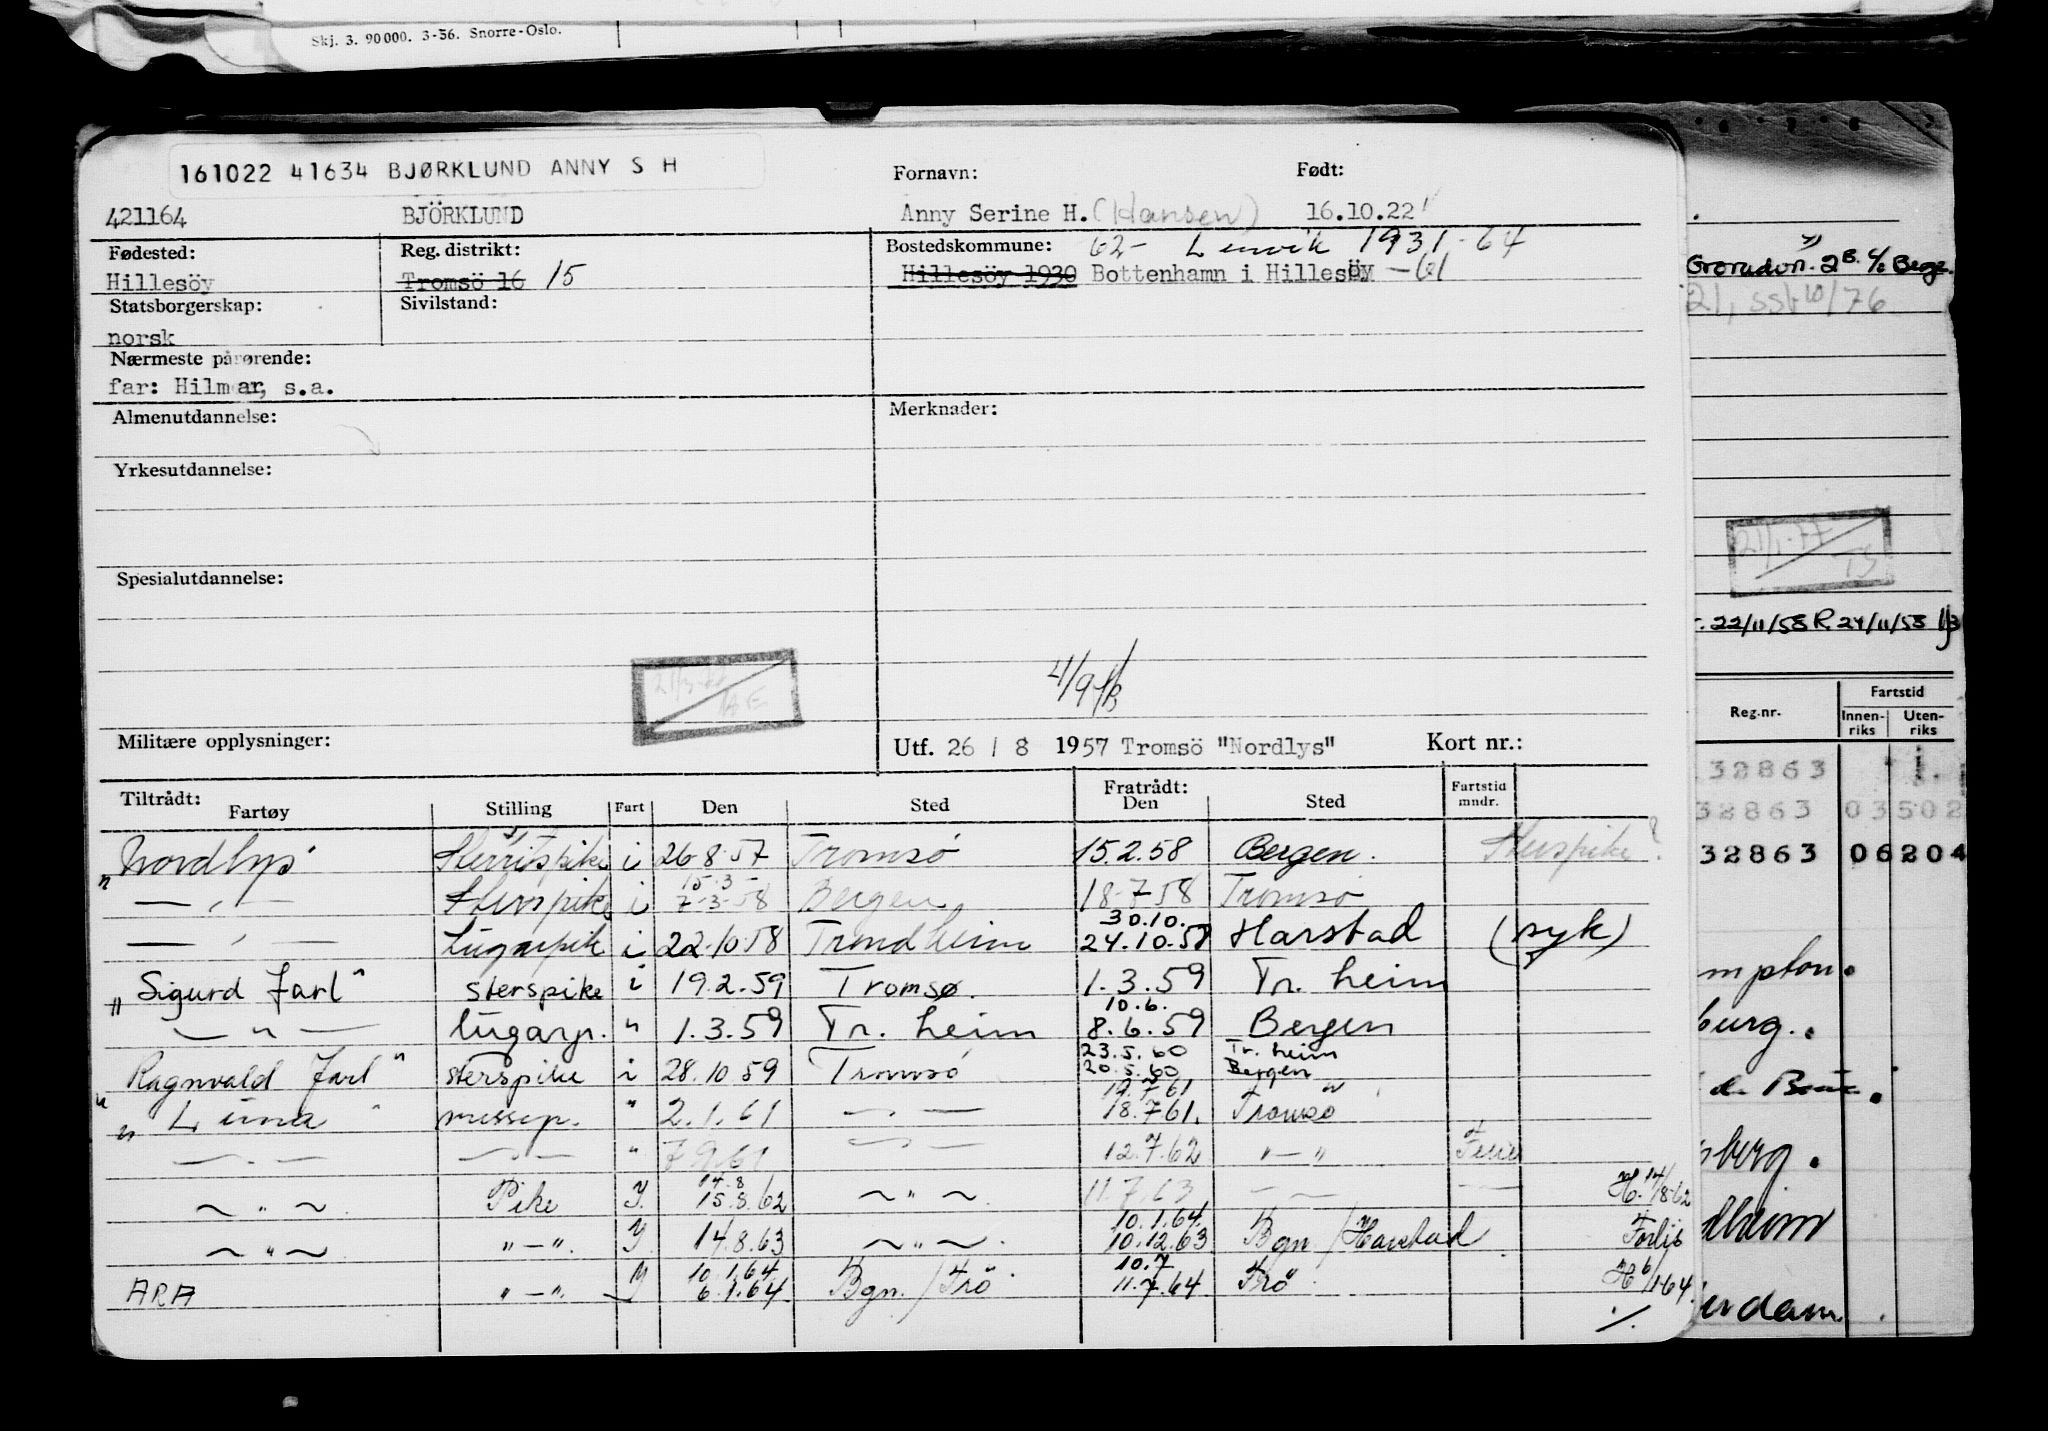 Skj. 3. 90000. 3-56. Snorre-Oslo.
161022 41634 BJØRKLUND ANNY S H
Fornavn: Født:
421164 BJÖRKLUND Anny Serine H. (Hansen) 16.10.22
Fødested: Reg. distrikt: Bostedskommune: 62- Lenvik 1931-64
Hillesöy Tromsö 16 15 Hillesöy 1930 Bottenhamn i Hillesöy -61
Statsborgerskap: Sivilstand:
norsk
Nærmeste pårørende:
far: Hilmar, s.a.
Almenutdannelse: Merknader:
Yrkesutdannelse:
Spesialutdannelse:
Militære opplysninger: Utf. 26 / 8 1957 Tromsö "Nordlys" Kort nr.:
Tiltrådt: Fratrådt: Fartstid
Fartøy Stilling Fart Den Sted Den Sted mndr.
"Nordlys" i 26-8-57 Tromsø 15.2.58 Bergen.
15.3
— " — i 7-3-58 Bergen 18-7-58 Tromsø
30.10.
— " — lugarpike i 22-10-58 Trondheim 24.10.58 Harstad (syk)
"Sigurd Jarl" sterspike i 19.2.59 Tromsø. 1.3.59 Tr. heim
10.6.
— " — lugarp. " 1.3.59 Tr. heim 8.6.59 Bergen
23.5.60 Tr. heim
"Ragnvald Jarl" sterspike i 28.10.59 Tromsø 20.5.60 Bergen
19.7.61 "
"Luna" messep. " 2.1.61 — . — 18.7.61. Tromsø
— . — — . — " 7.9.61 — . — 12.7.62 " — " Ferie
14.8 H. 14/8-62
~ " ~ Pike Y. 15.8.62 ~ " ~. 11.7.63 — —
10.1.64.
~ " ~ " — ". Y. 14.8.63 ~ " ~. 10.12.63 Bgn / Harstad Forlis
10.1.64. 10.7 H 6/1-64.
ARA " — ". Y 6.1.64. Bgn. / Trö 11.7.64 Trö
./.
21, sst 10/76
22/11/58 R. 24/11/58
Reg.nr. Fartstid
Innen-riks Uten-riks
32863
32863 03502
32863 06204
mpton.
burg.
berg.
dheim
dam.